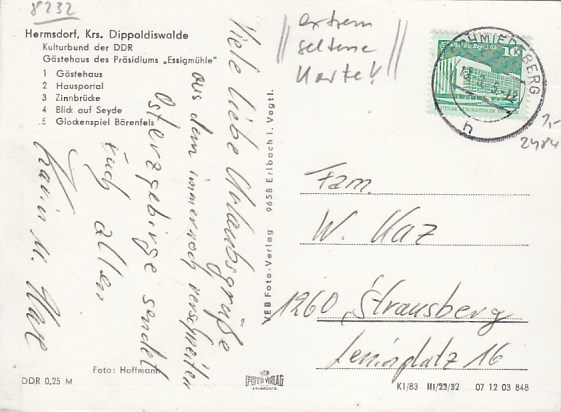 8232
Hermsdorf, Krs. Dippoldiswalde
Kulturbund der DDR
Gästehaus des Präsidiums „Essigmühle“
1 Gästehaus
2 Hausportal
3 Zinnbrücke
4 Blick auf Seyde
5 Glockenspiel Bärenfels
Viele liebe Urlaubsgrüße
aus dem immer noch verschneiten
Osterzgebirge sendet
Euch allen
Karin u.
DDR 0,25 M
Foto: Hoffmann
VEB Foto-Verlag 9658 Erlbach i. Vogtl.
FOTO VERLAG
extrem
seltene
Karte!
10
SCHMIEDEBERG
h
2484
Fam.
W. Kaz
1260 Strausberg
Leninplatz 16
K1/83 III/23/32 07 12 03 848